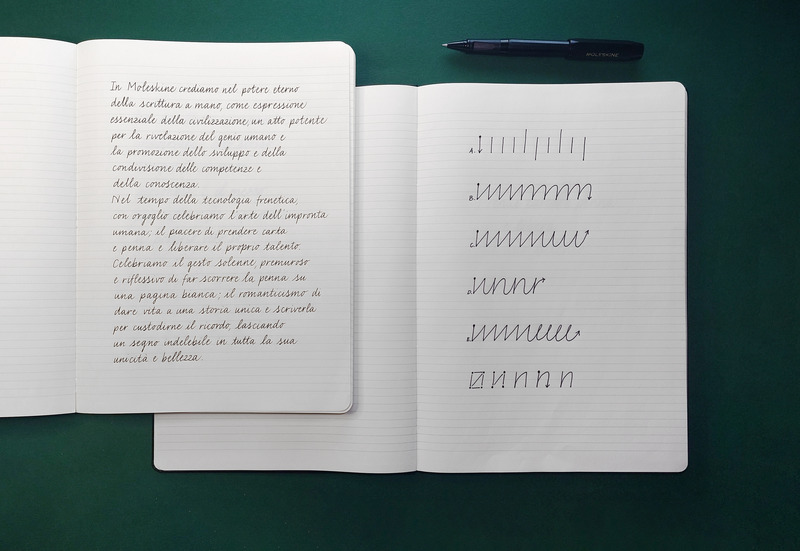 In Moleskine crediamo nel potere eterno
della scrittura a mano, come espressione
essenziale della civilizzazione, un atto potente
per la rivelazione del genio umano e
la promozione dello sviluppo e della
condivisione delle competenze e
della conoscenza.
Nel tempo della tecnologia frenetica,
con orgoglio celebriamo l'arte dell'impronta
umana; il piacere di prendere carta
e penna e liberare il proprio talento.
Celebriamo il gesto solenne, premuroso
e riflessivo di far scorrere la penna su
una pagina bianca; il romanticismo di
dare vita a una storia unica e scriverla
per custodirne il ricordo, lasciando
un segno indelebile in tutta la sua
unicità e bellezza.
MOLESKINE
A.
B.
C.
D.
E.